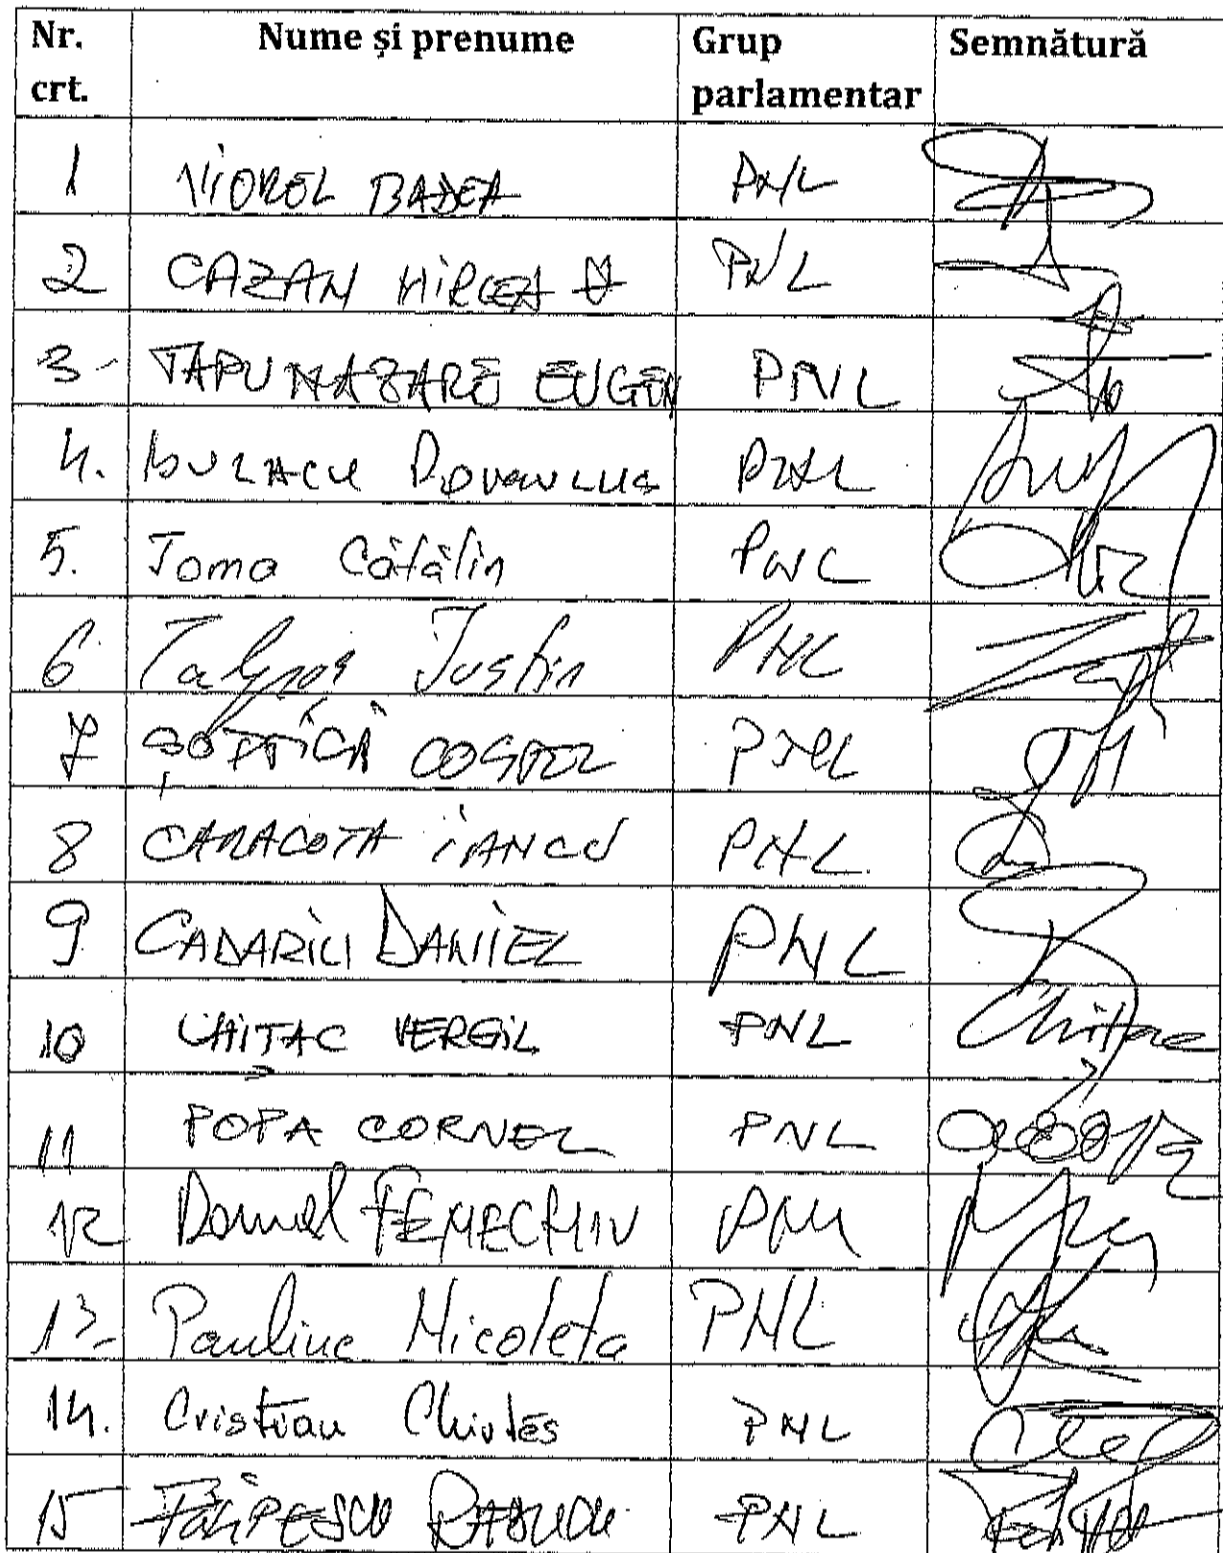 Nr. crt. Nume și prenume Grup parlamentar Semnătură
1 VIOREL BADEA PNL
2 CAZAN MIRCEA PNL
3 TAPU NAZARE EUGEN PNL
4. BULACU Romulus PNL
5. Toma Cătălin PNL
6 Talpoș Iustin PNL
7 ȘOPTICĂ COSTEL PNL
8 CARACOTA IANCU PNL
9 CADARIU DANIEL PNL
10 CHIȚAC VERGIL PNL Chițac
11 POPA CORNEL PNL
12 Daniel FENECHIU PNL
13 Pauliuc Nicoleta PNL
14. Cristian Chirteș PNL
15 PNL